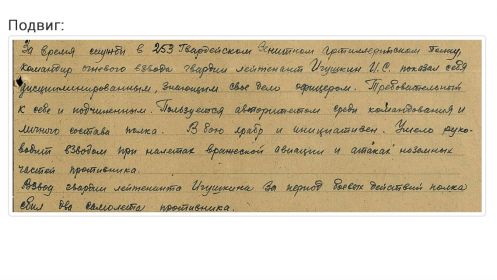 Подвиг:
За время службы в 253 Гвардейском Зенитном Артиллерийском Полку,
командир огневого взвода гвардии лейтенант Игушкин И.С. показал себя
дисциплинированным, знающим свое дело офицером. Требовательный
к себе и подчиненным. Пользуется авторитетом среди командования и
личного состава полка. В бою храбр и инициативен. Умело руко-
водит взводом при налетах вражеской авиации и атаках наземных
частей противника.
Взвод гвардии лейтенанта Игушкина за период боевых действий полка
сбил два самолета противника.